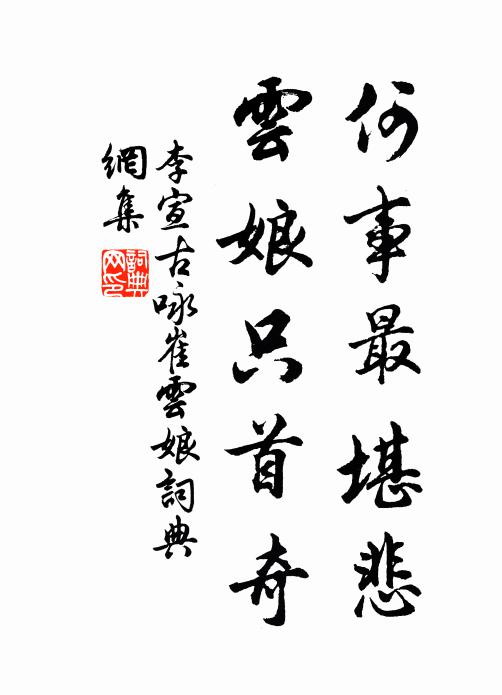 何事最堪悲
雲娘只首奇
李宣古咏崔雲娘詞典
網集
詞典
网印